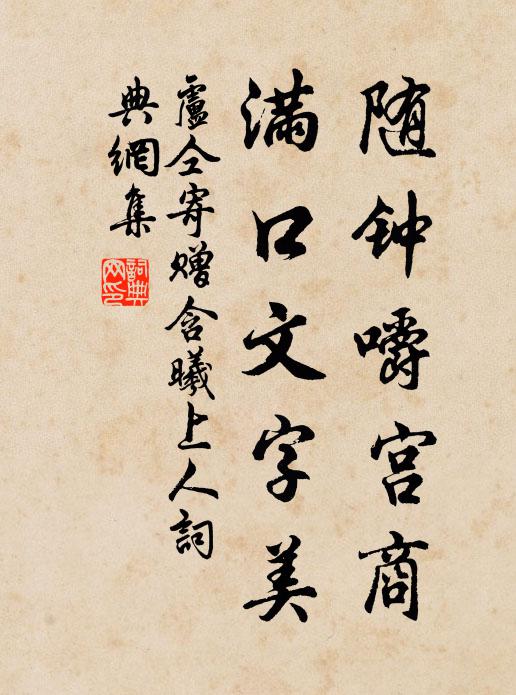 随钟嚼宫商
满口文字美
盧仝寄赠含曦上人詞
典網集
詞典
网印